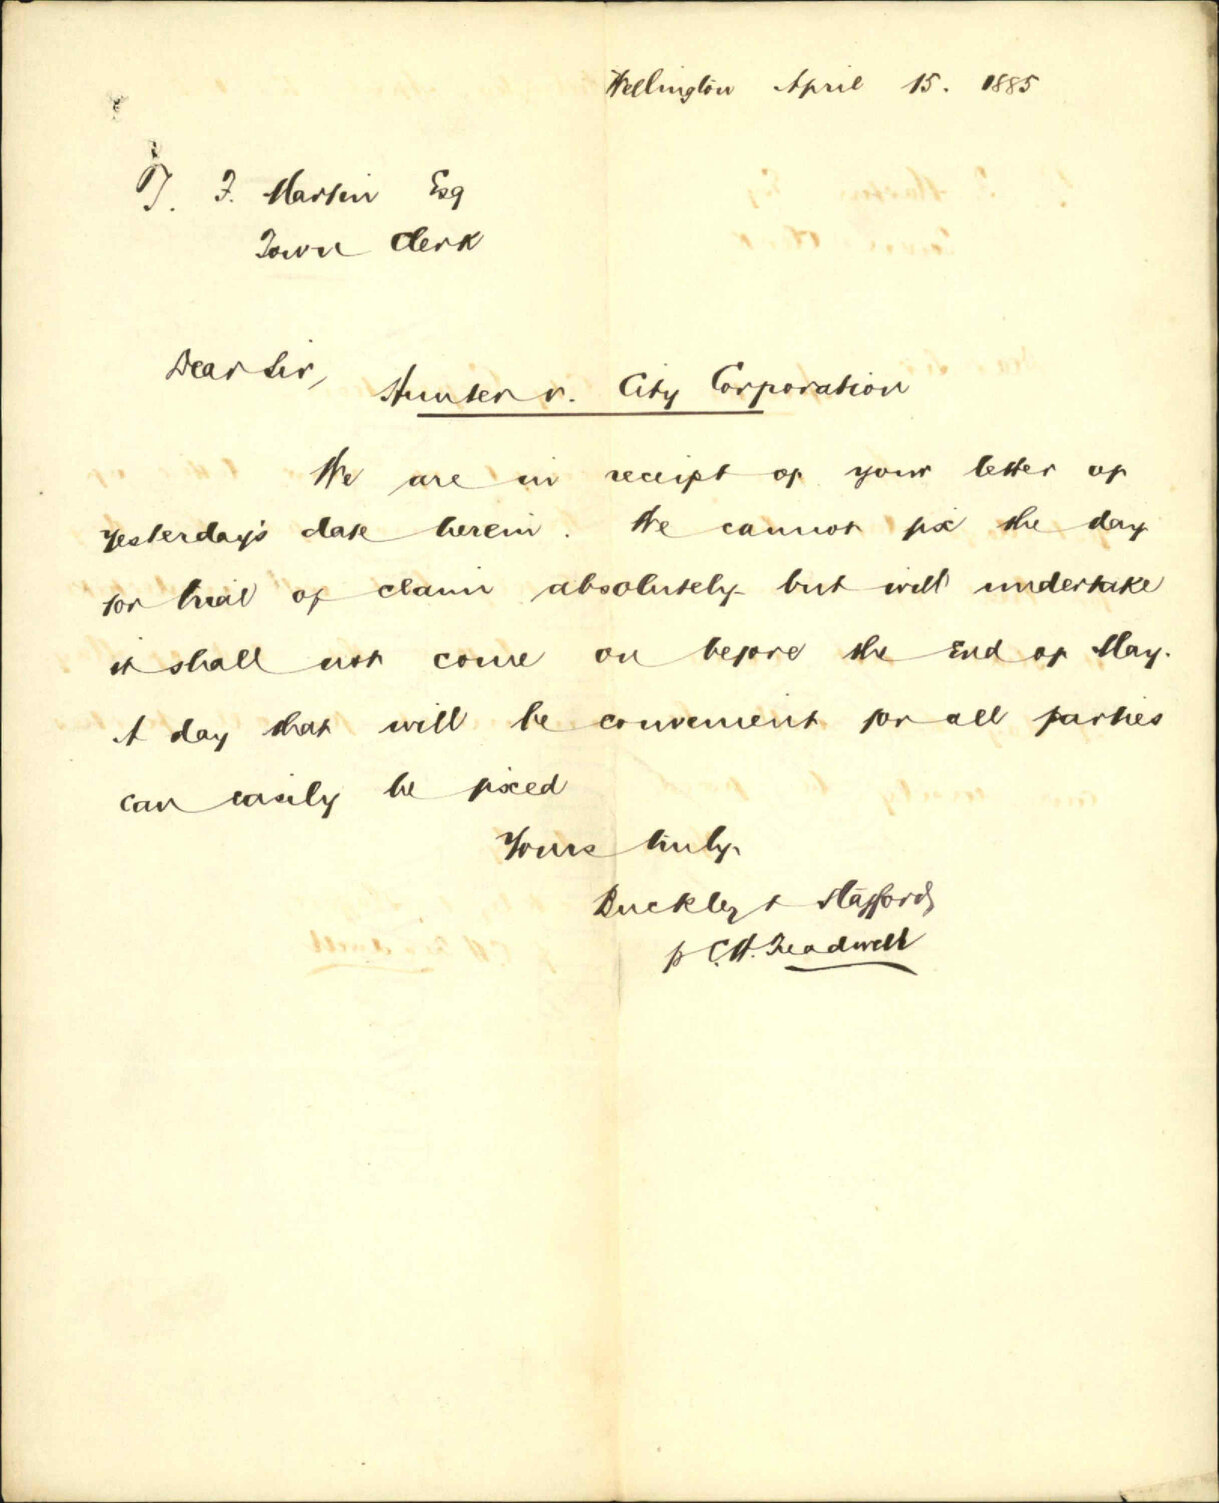 Wellington April 15. 1885
T. F. Martin Esq
Town Clerk
Dear Sir,
Hunter v. City Corporation
We are in receipt of your letter of
yesterday's date herein. We cannot fix the day
for trial of claim absolutely but will undertake
it shall not come on before the End of May.
A day that will be convenient for all parties
can easily be fixed
Yours truly,
Buckley & Stafford
p C.H. Treadwell